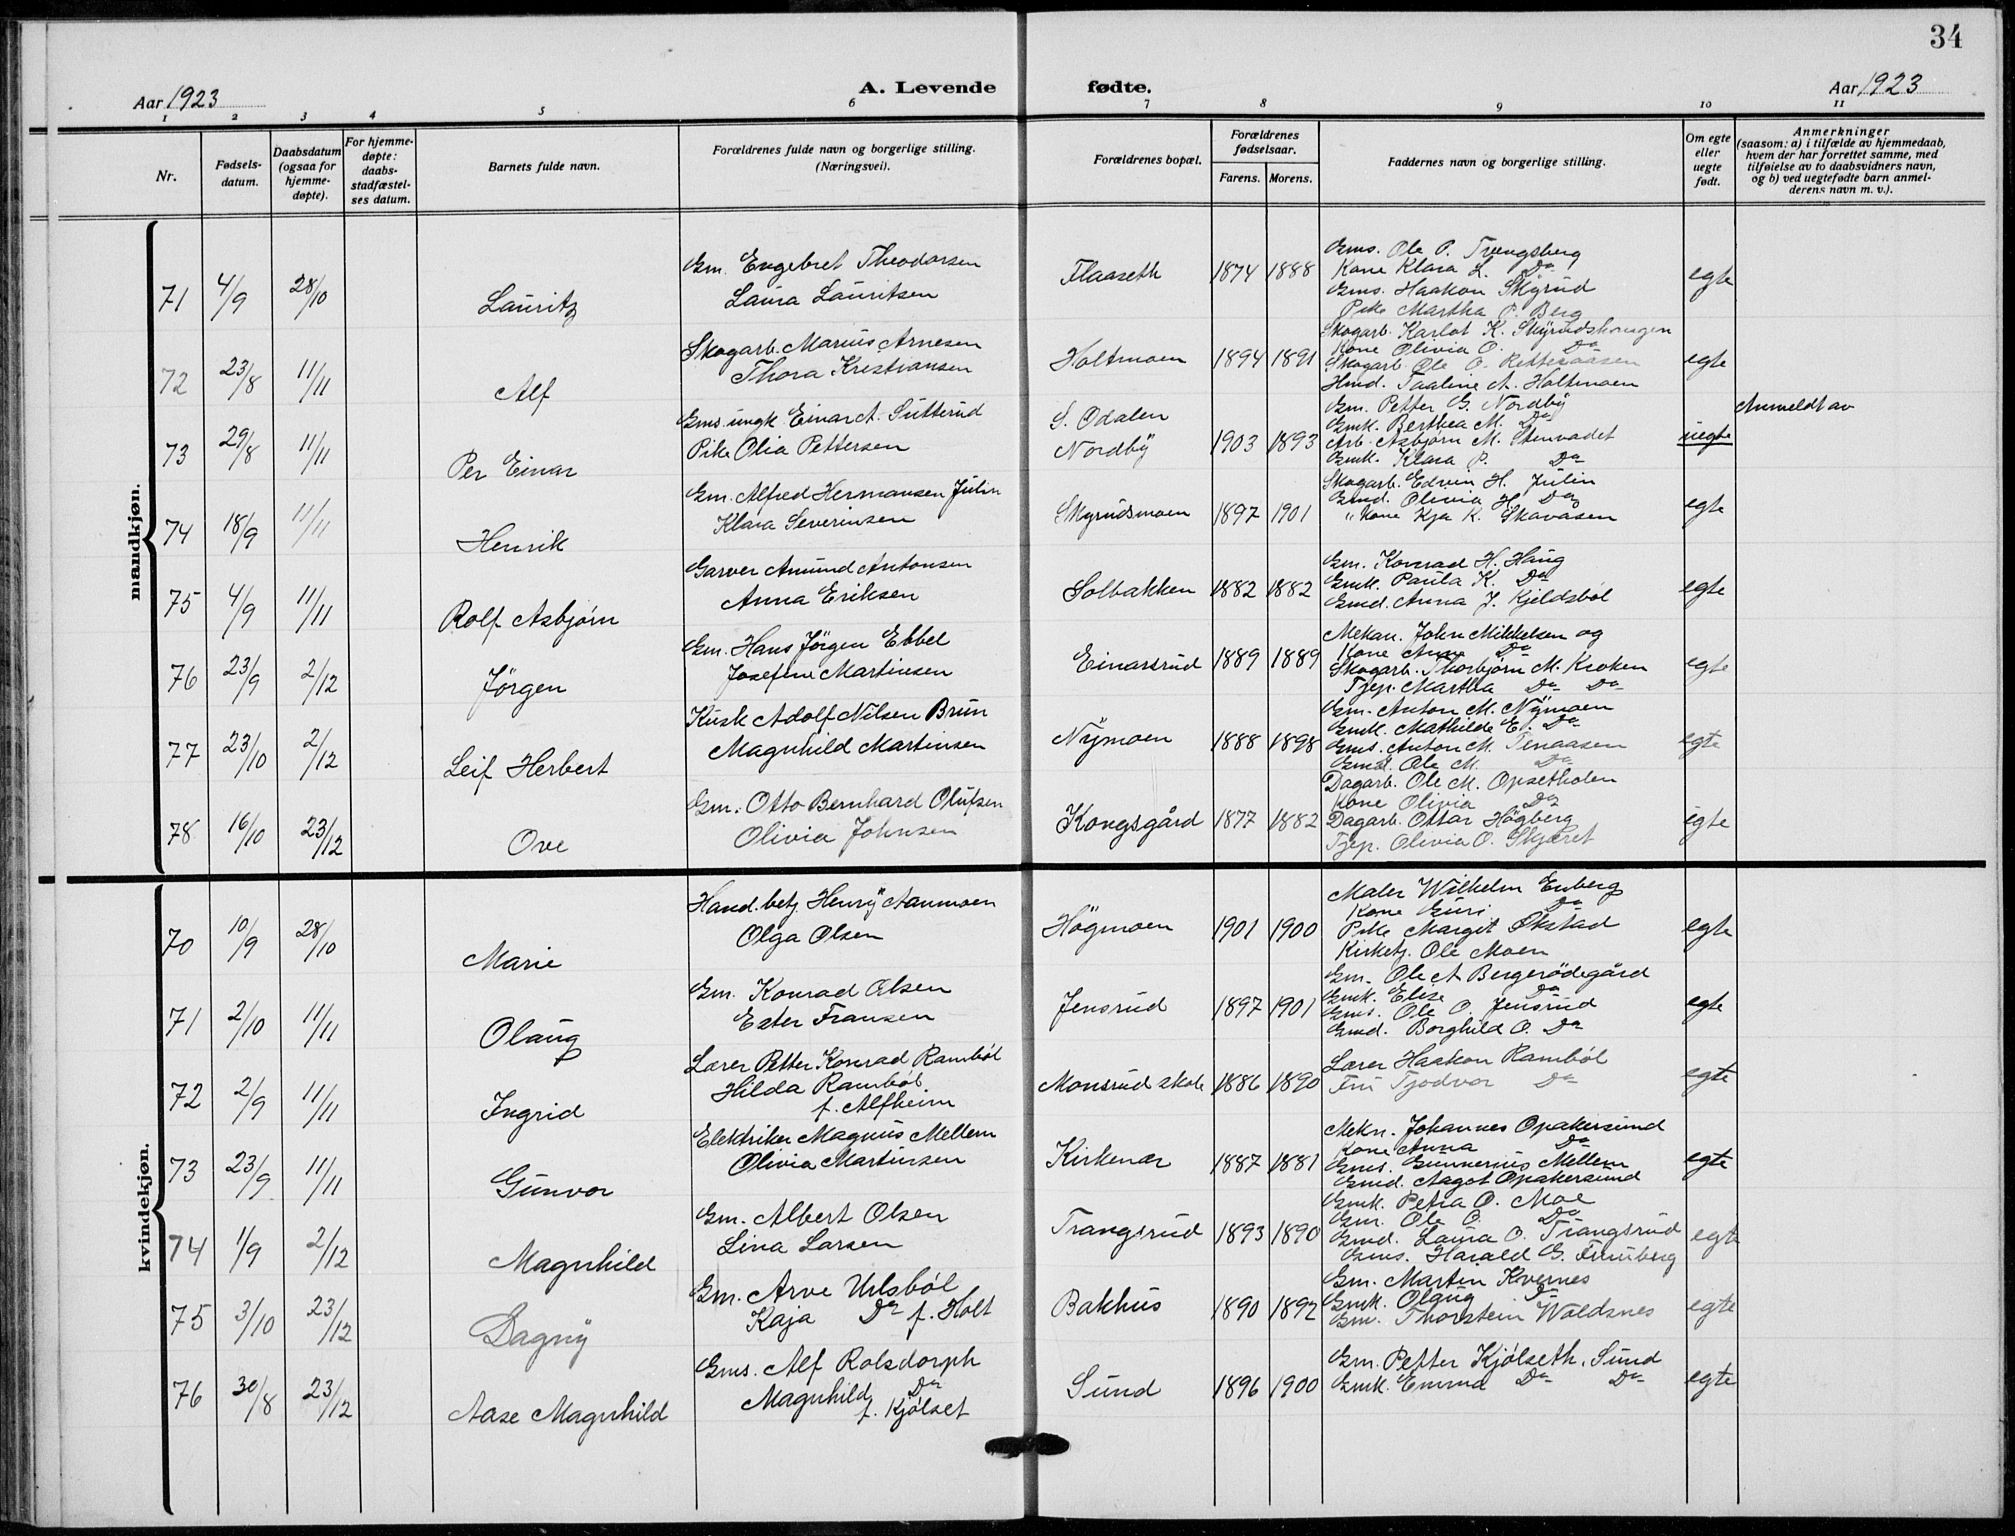 34
Aar 1923
A. Levende fødte.
Aar 1923
1 2 3 4 5 6 7 8 9 10 11
Nr.
Fødsels-
datum.
Daabsdatum
(ogsaa for
hjemme-
døpte).
For hjemme-
døpte:
daabs-
stadfæstel-
ses datum.
Barnets fulde navn.
Forældrenes fulde navn og borgerlige stilling.
(Næringsvei).
Forældrenes bopæl.
Forældrenes
fødselsaar.
Farens. Morens.
Faddernes navn og borgerlige stilling.
Om egte
eller
uegte
født.
Anmerkninger
(saasom: a) i tilfælde av hjemmedaab,
hvem der har forrettet samme, med
tilføielse av to daabsvidners navn,
og b) ved uegtefødte barn anmel-
derens navn m. v.).
mandkjøn.
71 4/9 28/10 Lauritz
Gm. Engebret Theodorsen
Laura Lauritsen
Flaaseth 1874 1888
Gms. Ole P. Trængsberg
Kone Klara L. Do
Gms. Haakon Skyrud
Pike Martha P. Berg
egte
72 23/8 11/11 Alf
Skogarb. Marius Arnesen
Thora Kristiansen
Holtmoen 1894 1891
Skogarb. Karlot K. Skyrudshaugen
Kone Olivia O. Do
Skogarb. Ole O. Retteraasen
Hmd. Paaline A. Holtmoen
egte
73 29/8 11/11 Per Einar
Gms. ungk Einar A. Sutterud
Pike Olia Pettersen
S. Odalen
Nordby 1903 1893
Gm. Petter G. Nordby
Gmk. Berthea M. Do
Arb. Asbjørn M. Stenvadet
Gmk. Klara P. Do
uegte
Anmeldt av
74 18/9 11/11 Henrik
Gm. Alfred Hermansen Julin
Klara Severinsen
Skyrudsmoen 1897 1901
Skogarb. Edvin H. Julin
Gmd. Olivia H. Do
" Kone Kja K. Skavåsen
egte
75 4/9 11/11 Rolf Asbjørn
Garver Amund Antonsen
Anna Eriksen
Solbakken 1882 1882
Gm. Konrad H. Haug
Gmk. Paula K. Do
Gmd. Anna J. Kjeldsbøl
egte
76 23/9 2/12 Jörgen
Gm. Hans Jörgen Ebbel
Josefine Martinsen
Einarsrud 1889 1889
Mekan. John Mikkelsen og
Kone Anna Do
Skogarb. Thorbjörn M. Kroken
Tjep. Martha Do Do
egte
77 23/10 2/12 Leif Herbert
Kusk Adolf Nilsen Brun
Magnhild Martinsen
Nymoen 1888 1898
Gm. Anton M. Nymoen
Gmk. Mathilde E. Do
Gms. Anton M. Tenaasen
Gmd. Ole M. Do
egte
78 16/10 23/12 Ove
Gm. Otto Bernhard Olufsen
Olivia Johnsen
Kongsgård 1877 1882
Dagarb. Ole M. Opsetholen
Kone Olivia Do
Dagarb. Ottar Högberg
Tjep. Olivia O. Skjæret
egte
kvindekjøn.
70 10/9 28/10 Marie
Hand.betj. Henry Aanmoen
Olga Olsen
Högmoen 1901 1900
Maler Wilhelm Enberg
Kone Guri Do
Pike Margit Økstad
Kirketj. Ole Moen
egte
71 2/10 11/11 Olaug
Gm. Konrad Olsen
Ester Fransen
Jensrud 1897 1901
Gm. Ole A Bergerödegård
Gmk. Elise Do
Gms. Ole O. Jensrud
Gmd. Borghild O. Do
egte
72 2/9 11/11 Ingrid
Lærer Petter Konrad Rambøl
Hilda Rambøl.
f. Alfheim
Monsrud skole 1886 1890
Lærer Haakon Rambøl
Fru Tjodvor Do
egte
73 23/9 11/11 Gunvor
Elektriker Magnus Mellem
Olivia Martinsen
Kirkenær 1887 1881
Mekn. Johannes Opakersund
Kone Anna Do
Gms. Gunnerius Mellem
Gmd. Aagot Opakersund
egte
74 1/9 2/12 Magnhild
Gm. Albert Olsen
Lina Larsen
Trangsrud 1893 1890
Gmk. Petra O. Moe
Gm. Ole O. Do
Gmd. Laura O. Trangsrud
Gms. Harald G. Furuberg
egte
75 3/10 23/12 Dagny
Gm. Arve Ulsböl
Kaja Do f. Holt
Bakhus 1890 1892
Gm. Marten Kvernes
Gmk. Olaug Do
Gm. Thorstein Woldsnes
egte
76 30/8 23/12 Aase Magnhild
Gms. Alf Rolsdorph
Magnhild Do
f. Kjölset
Sund 1896 1900
Gm. Petter Kjölseth, Sund
Gmk. Emma Do Do
egte